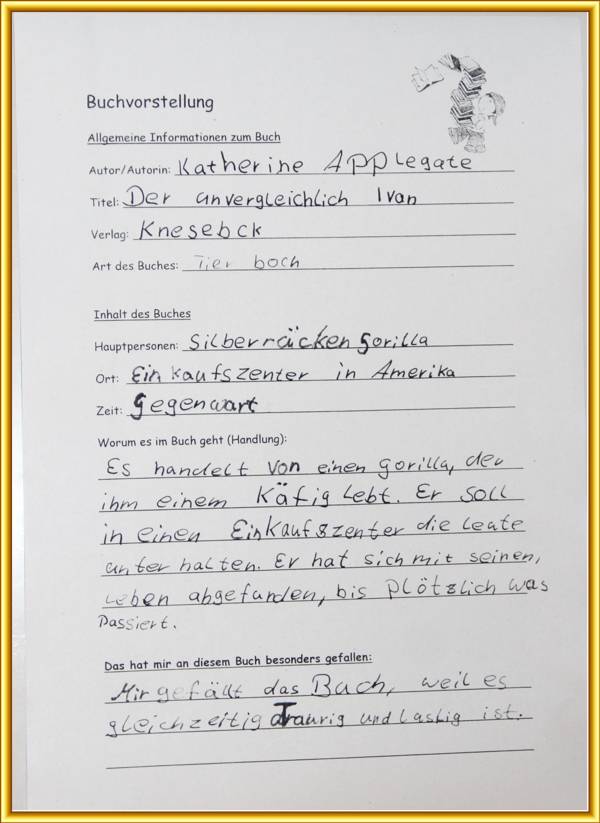 Buchvorstellung
Allgemeine Informationen zum Buch
Autor/Autorin: Katherine Applegate
Titel: Der unvergleichlich Ivan
Verlag: Knesebck
Art des Buches: Tier boch
Inhalt des Buches
Hauptpersonen: Silberräcken Gorilla
Ort: Einkaufszenter in Amerika
Zeit: Gegenwart
Worum es im Buch geht (Handlung):
Es handelt von einen Gorilla, der
ihm einem Käfig lebt. Er soll
in einen Einkaufszenter die leute
unter halten. Er hat sich mit seinen,
Leben abgefunden, bis plötzlich was
Passiert.
Das hat mir an diesem Buch besonders gefallen:
Mir gefällt das Buch, weil es
gleichzeitig Traurig und lastig ist.